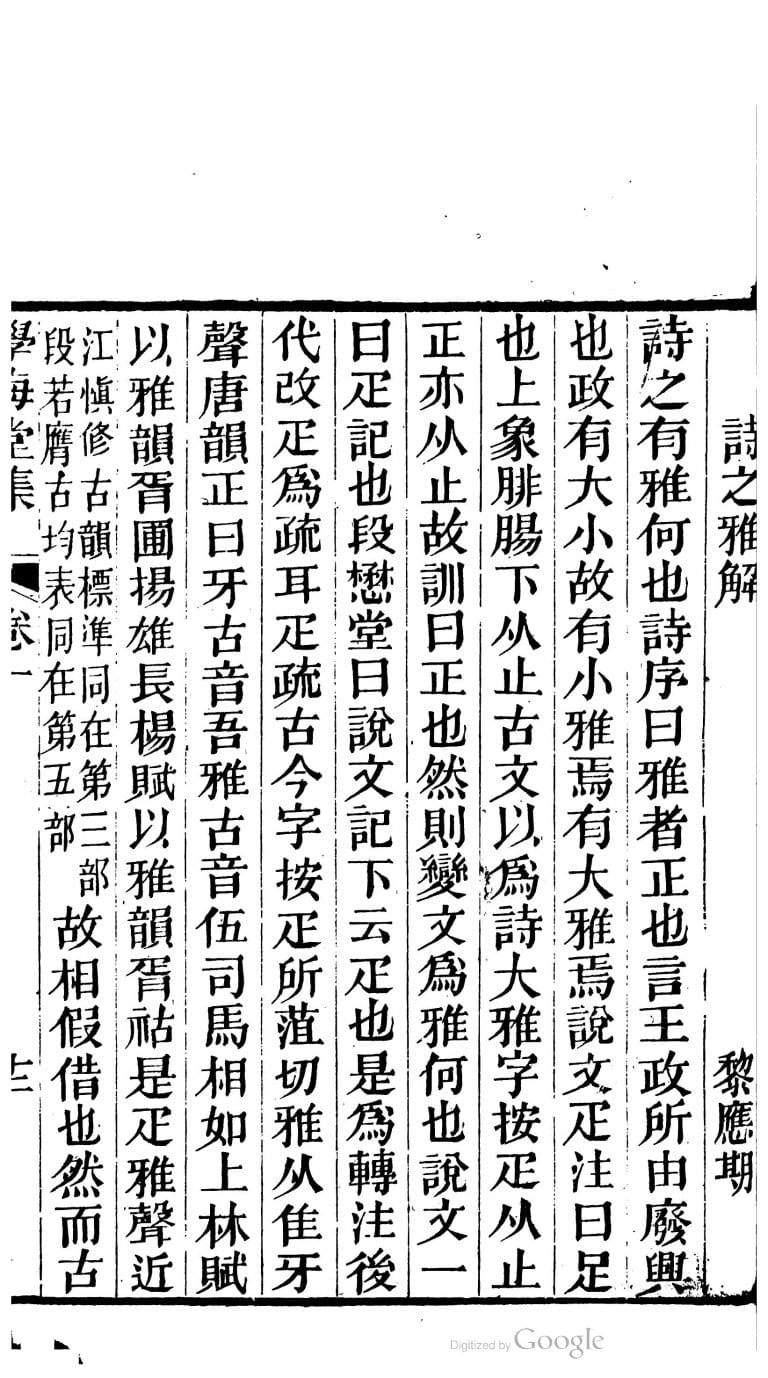 詩之雅解　黎應期
詩之有雅何也詩序曰雅者正也言王政所由廢興
也政有大小故有小雅焉有大雅焉說文疋注曰足
也上象腓腸下从止古文以爲詩大雅字按疋从止
正亦从止故訓曰正也然則變文爲雅何也說文一
曰疋記也段懋堂曰說文記下云疋也是爲轉注後
代改疋爲疏耳疋疏古今字按疋所菹切雅从隹牙
聲唐韻正曰牙古音吾雅古音伍司馬相如上林賦
以雅韻胥圃揚雄長楊賦以雅韻胥祜是疋雅聲近
江愼修古韻標準同在第三部
段若膺古均表同在第五部
故相假借也然而古
學海堂集　卷一　十二
Digitized by Google